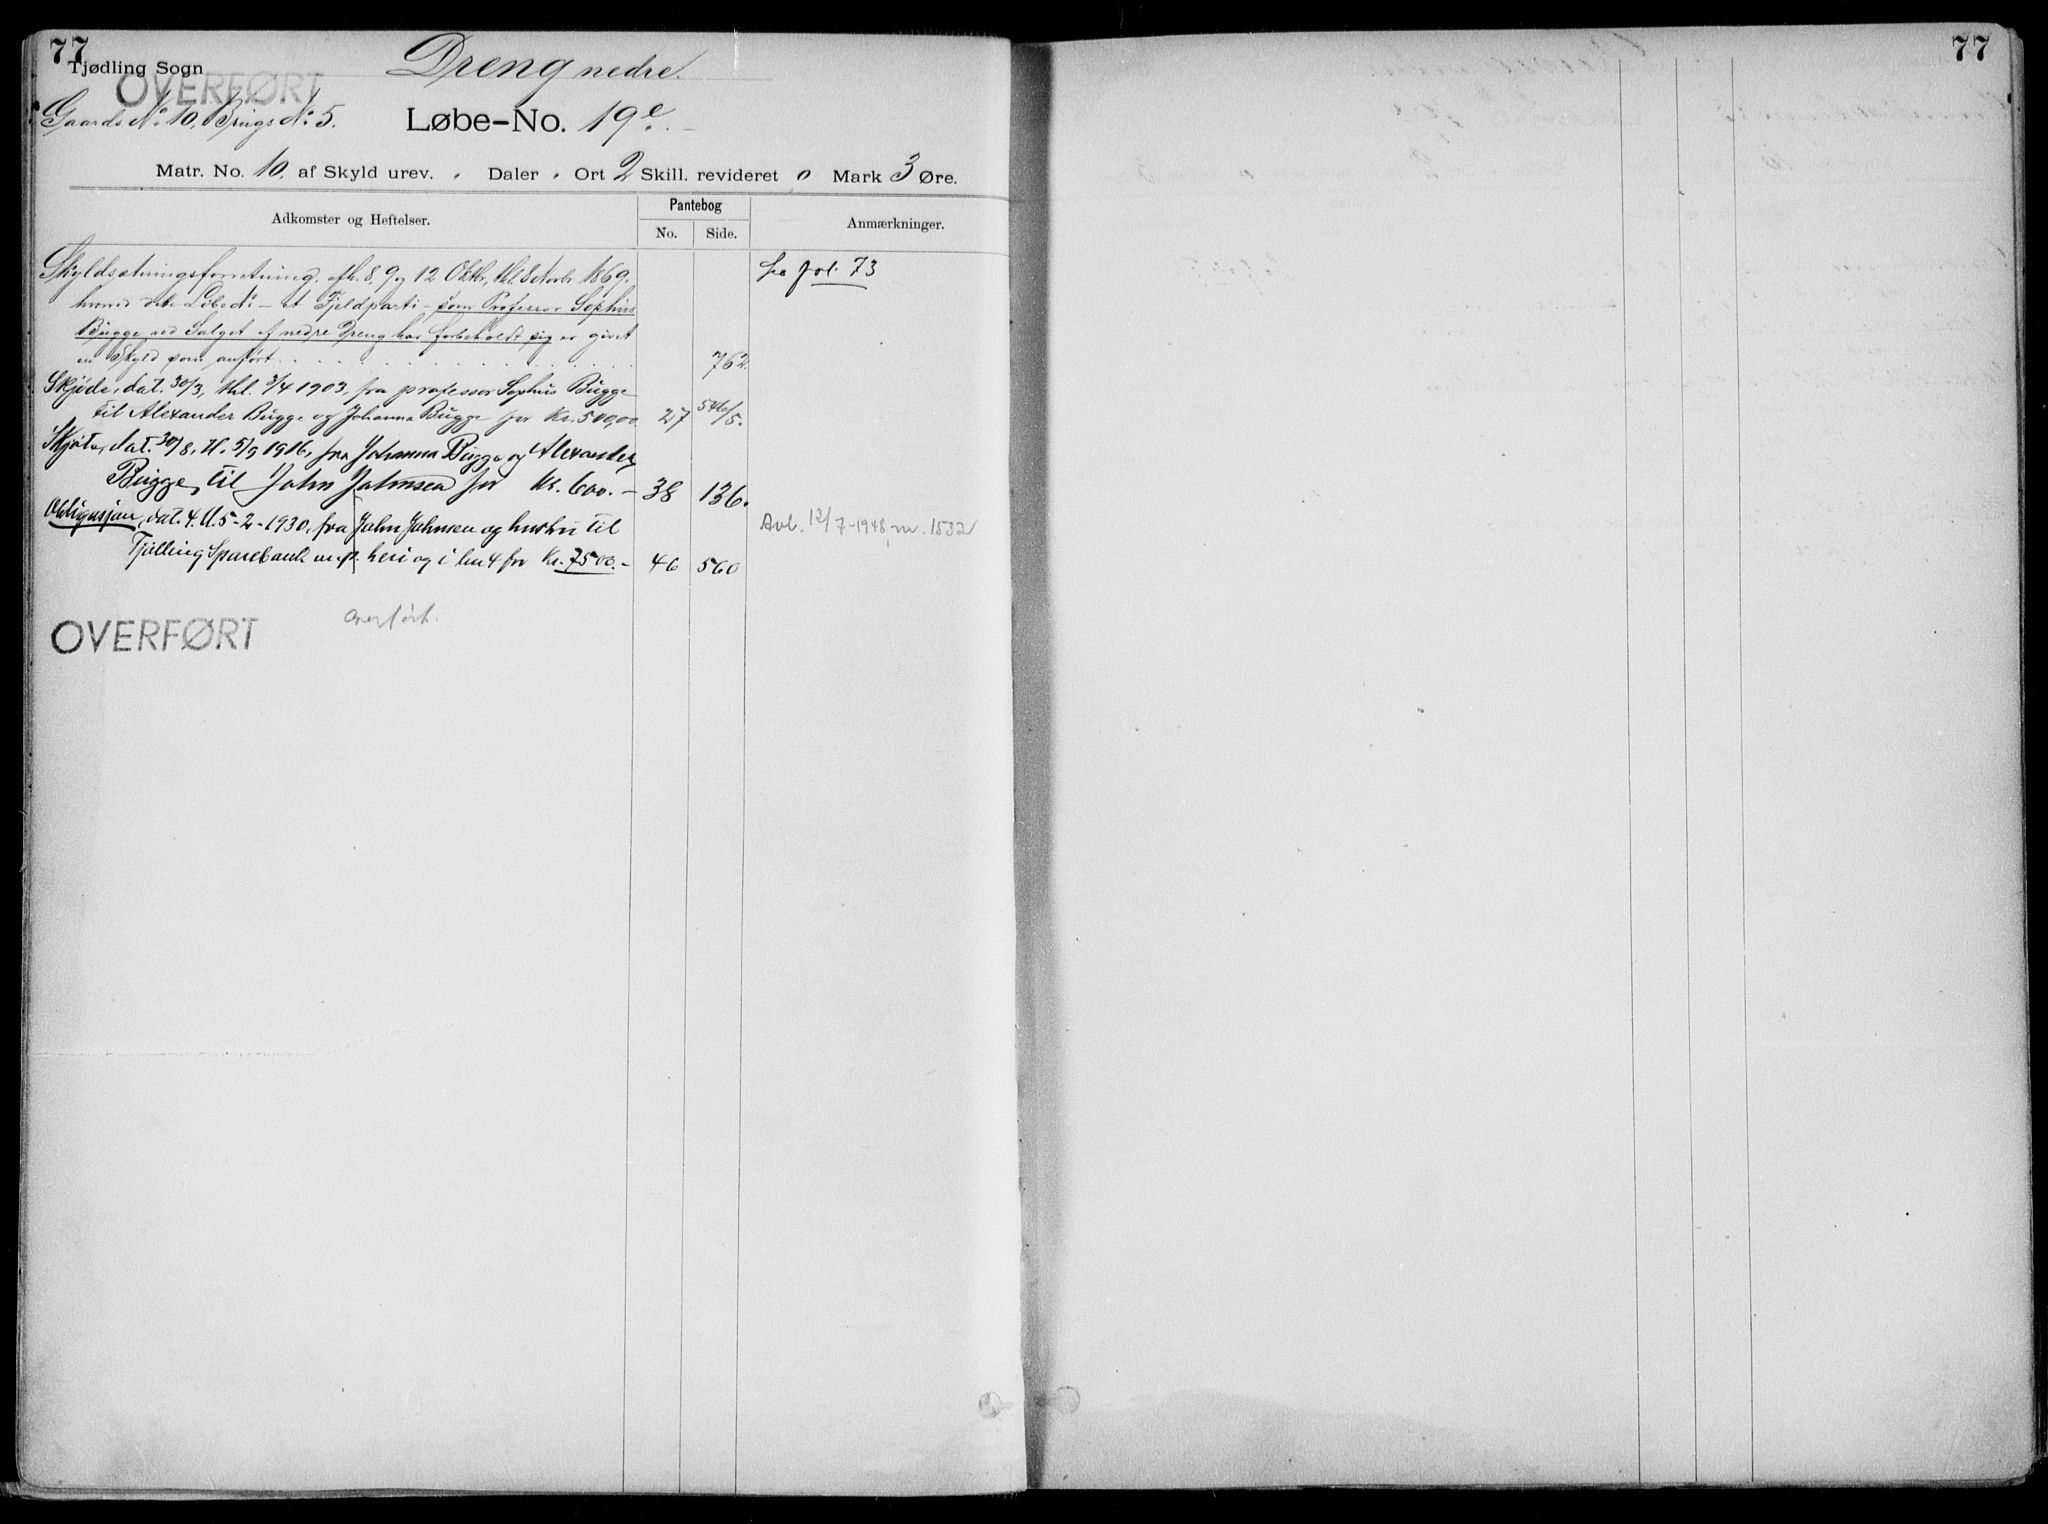 77
77
Tjødling Sogn
Dreng nedre.
OVERFØRT
Gaards No 10, Brugs No 5.
Løbe-No. 19e.
Matr. No. 10. af Skyld urev. " Daler " Ort 2 Skill. revideret 0 Mark 3 Øre.
Adkomster og Heftelser.
Pantebog
No. Side.
Anmærkninger.
Skyldsætningsforretning, afh. 8, 9 og 12 Oktbr, thl. 8 Novbr 1869.
fra fol. 73
hvorved dette Løbe No – et Fjeldparti – som Professor Sophus
Bugge ved Salget af nedre Dreng har forbeholdt sig er givet
en Skyld som anført . . . . . . . . . . 762.
Skjøde, dat. 30/3, thl. 3/4 1903, fra professor Sophus Bugge
til Alexander Bugge og Johanna Bugge for Kr. 500,00. 27 546/5.
Skjøte, dat. 30/8, tl. 5/9 1916, fra Johanna Bugge og Alexander
Bugge, til John Johnsen for Kr. 600.– 38 136.
Obligasjon, dat. 4. tl. 5-2-1930, fra John Johnsen og hustru til
Avl. 12/7-1948, nr. 1532
Tjølling Sparebank m. p. heri og i bnr 4 for Kr. 7500.– 46 560
overført.
OVERFØRT